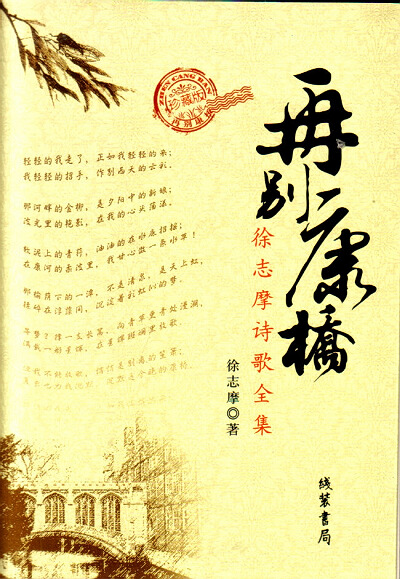 再别康桥
徐志摩诗歌全集
徐志摩◎著
线装书局
ZHEN CANG BAN
珍藏版
再别康桥
轻轻的我走了，正如我轻轻的来；
我轻轻的招手，作别西天的云彩。
那河畔的金柳，是夕阳中的新娘；
波光里的艳影，在我的心头荡漾。
软泥上的青荇，油油的在水底招摇；
在康河的柔波里，我甘心做一条水草！
那榆荫下的一潭，不是清泉，是天上虹，
揉碎在浮藻间，沉淀着彩虹似的梦。
寻梦？撑一支长篙，向青草更青处漫溯，
满载一船星辉，在星辉斑斓里放歌。